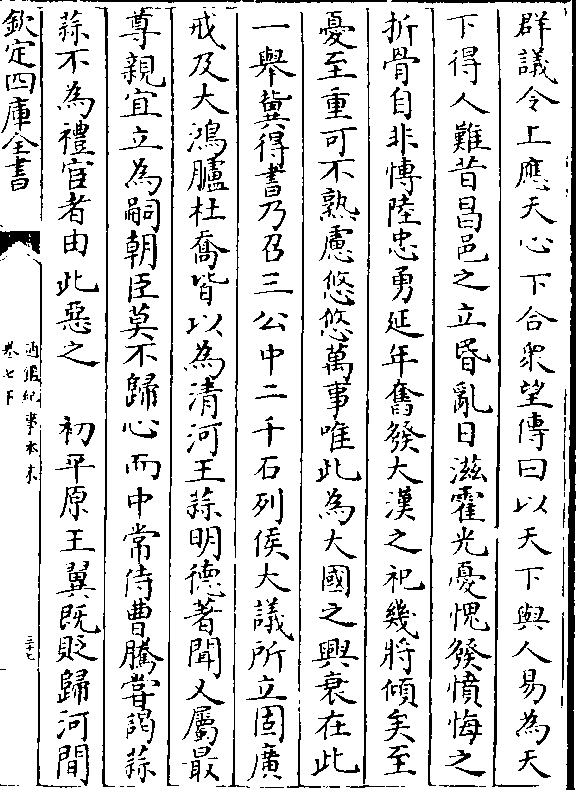 群議令上應天心下合衆望傳曰以天下與人易為天
下得人難昔昌邑之立昏亂日滋霍光憂愧發憤悔之
折骨自非博陸忠勇延年奮發大漢之祀幾將傾矣至
憂至重可不熟慮悠悠萬事唯此為大國之興衰在此
一舉冀得書乃召三公中二千石列侯大議所立固廣
戒及大鴻臚杜喬皆以為清河王蒜明德著聞又屬最
尊親宜立為嗣朝臣莫不歸心而中常侍曹騰嘗謁蒜
蒜不為禮宦者由此惡之 初平原王翼既貶歸河間
欽定四庫全書
通鑑紀事本末
卷七下
三十七